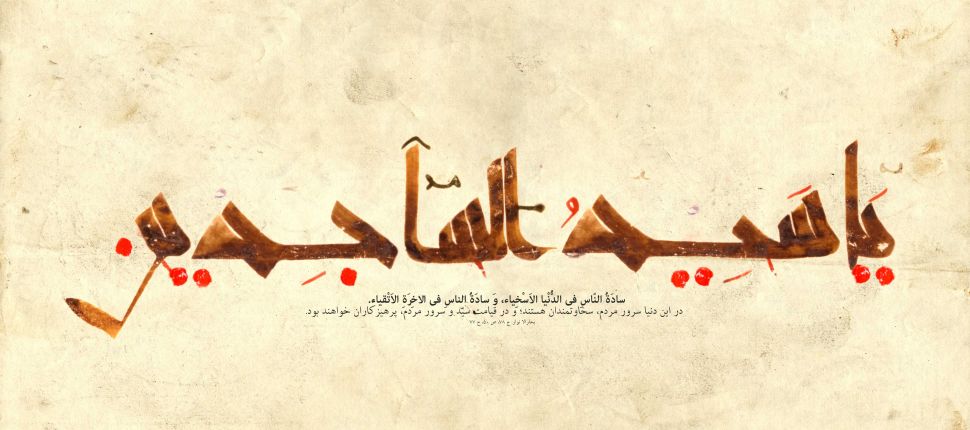 یا سیدُ الساجدین
سادَةُ النّاسِ فِی الدُّنْیا الاَسْخِیاء، وَ سادَةُ الناسِ فِی الاخِرَةِ الاَتْقیاء.
در این دنیا سرور مردم، سخاوتمندان هستند؛ و در قیامت سیّد و سرور مردم، پرهیزکاران خواهند بود.